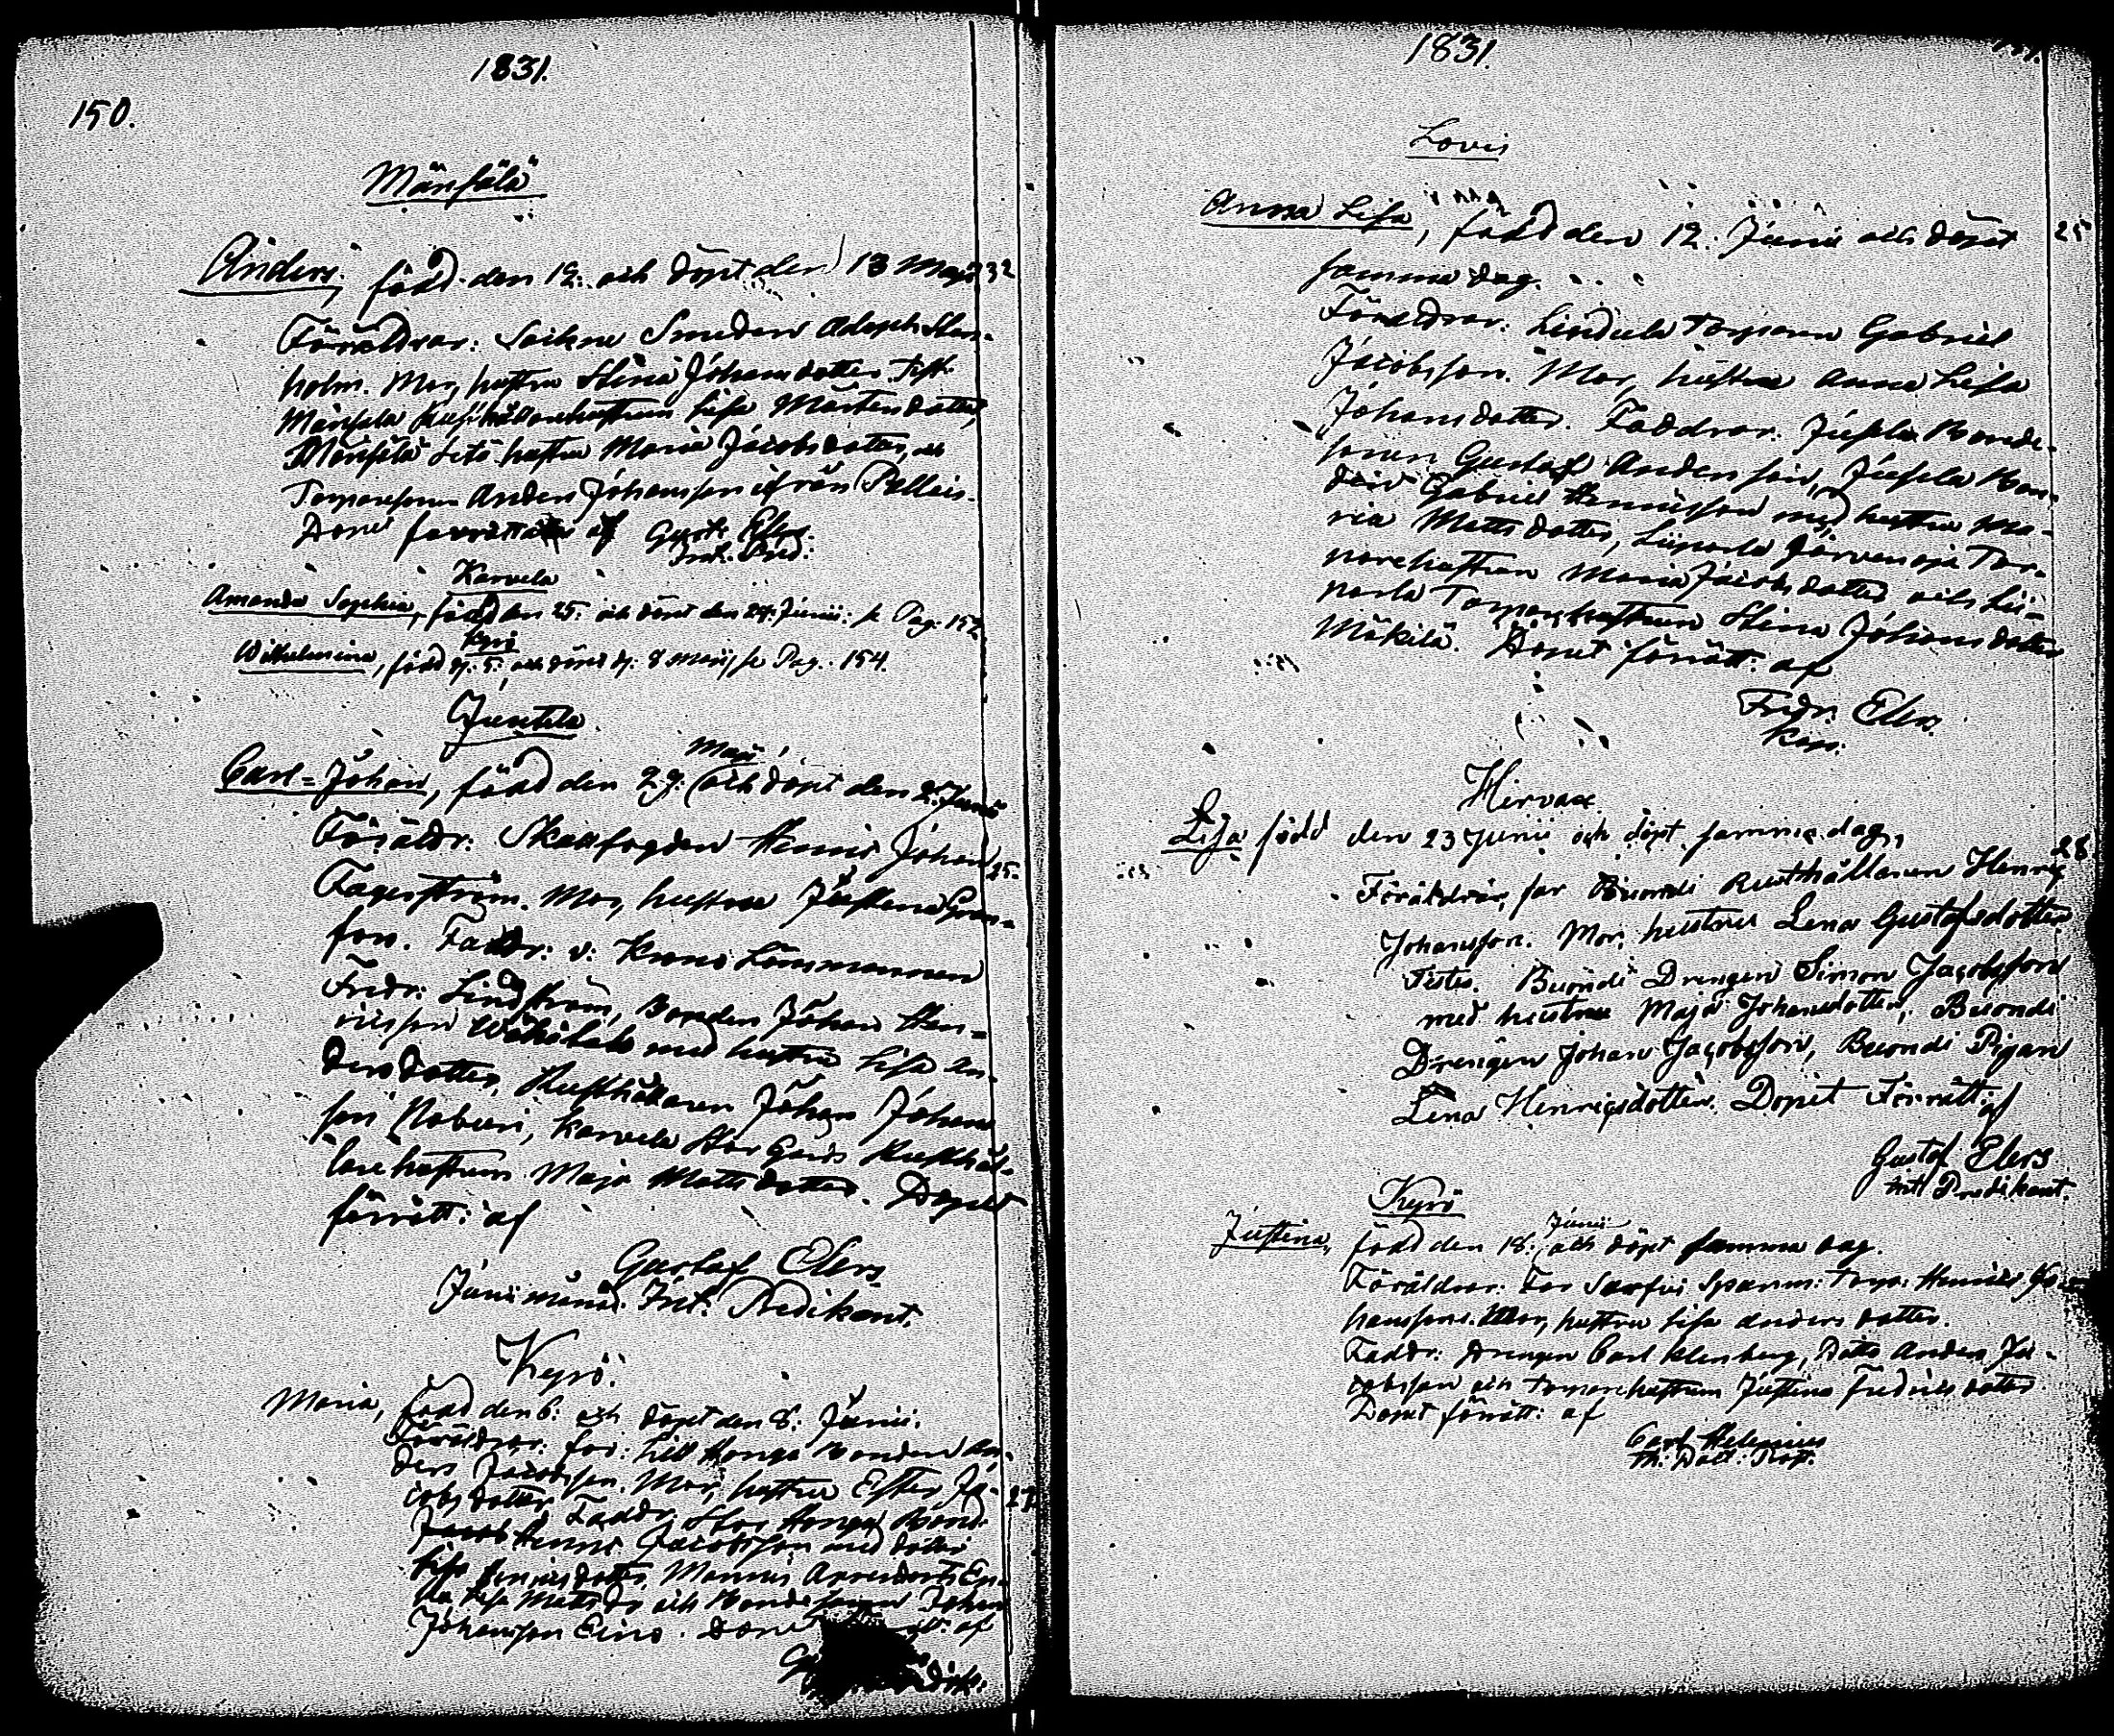 1831.
150.
Mänsälä
Anders, född den 12. och döpt den 13 Maji 32
Föräldrar: Sockne Smeden Adolph Sten-
holm. Mor, hustru Stina Johansdotter. Test:
Mänsälä Rusthållarehustrun Lisa Mårtensdotter,
Mänsälä hustru Maria Jacobsdotter, och
Torparesonen Anders Johansson ifrån Palleis.
Dopet förrättades af Gust: Elers.
Int. Pred:
Karvela
Amanda Sophia, född den 25. och döpt den 27. Junii: se Pag. 152
Kyrö
Wilhelmina, född d. 5. och döpt d. 8 Maij, se Pag. 154.
Juntila
Maji
Carl-Johan, född den 29. och döpt den 2. Junii
Föräldr: Skallfogden Henric Johan 25.
Fagerström. Mor, hustru Justina Gran-
fors. Faddr: v. Krono Länsmannen
Fredr: Lindström, Bonden Johan Hen-
ricsson med hustru Lisa An-
dersdotter, Rusthållaren Johan Johans-
son Noburi, Karvela Stor Gårds Rusthål-
larehustrun Maja Mattsdotter. Dopet
förrätt: af
Gustaf Elers
Junii månad. Int. Predikant.
Kyrö.
Maria, född den 6. och döpt den 8. Junii.
Föräldrar: far: Lill Honga Bonden An-
ders Jacobsson. Mor, hustru Ester Ja-
cobsdotter. Faddr: Stor Honga Bond. 27
Jacob Henric Jacobsson med dotter
Lisa Henricsdotter, En-
ka Lisa Matts dr och Bondesonen Johan
Johansson Eino. Dopet af
1831.
Lovis
Anna Lisa, född den 12. Junii och döpt 25
samma dag.
Föräldrar: Lindula Torparen Gabriel
Jacobsson. Mor, hustru Anna Lisa
Johansdotter. Faddrar: Jusela Bonde-
sonen Gustaf Andersson, Jusela Bon-
den Gabriel Henricsson med hustru Ma-
ria Mattsdotter, Liiparla Järvenoja Tor-
parehustrun Maria Jacobsdotter och Lii-
parla Torparehustrun Stina Johansdotter
Mäkilä. Dopet förrätt: af
Fredr. Elers.
Kap.
Hirvax
Lisa född den 23 Junii och döpt samma dag, 28
Föräldrar, far Buondi Rusthållaren Henric
Johansson. Mor, hustru Lena Gustafsdotter
Testes. Buondi Drengen Simon Jacobsson
med hustru Maja Johansdotter, Buondi
Drengen Johan Jacobsson, Buondi Pigan
Lena Henrigsdotter. Dopet Förrätt: af
Gustaf Elers
Int Predikant.
Kyrö
Junii
Justina, född den 18. och döpt samma dag.
Föräldrar: Far Torp: Henric Jo-
hansson. Mor, hustru Lisa Andersdotter.
Faddr: Drengen Carl Klenberg, Ditto Anders Ja-
cobsson och torparehustrun Justina Fredricsdotter
Dopet förrätt: af
Carl Helenius